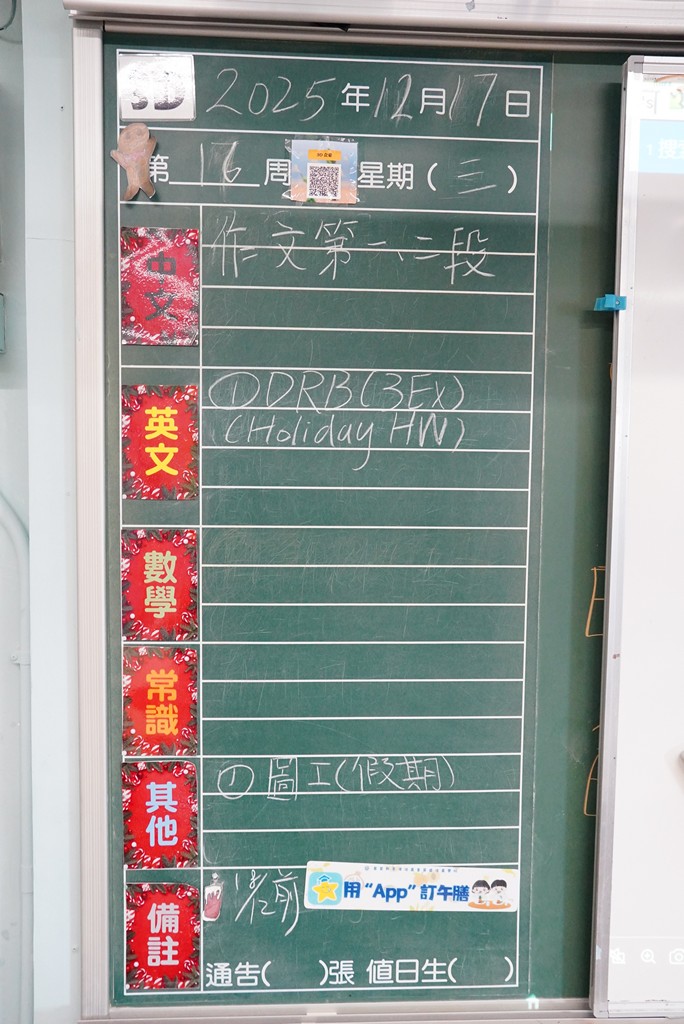 5D 2025年12月17日
第16周 星期(三)
中文
作文第一、二段
英文
①DRB(3Ex)
(Holiday HW)
數學
常識
其他
①圖工(假期)
備註
用“App”訂午膳
通告( )張 值日生( )